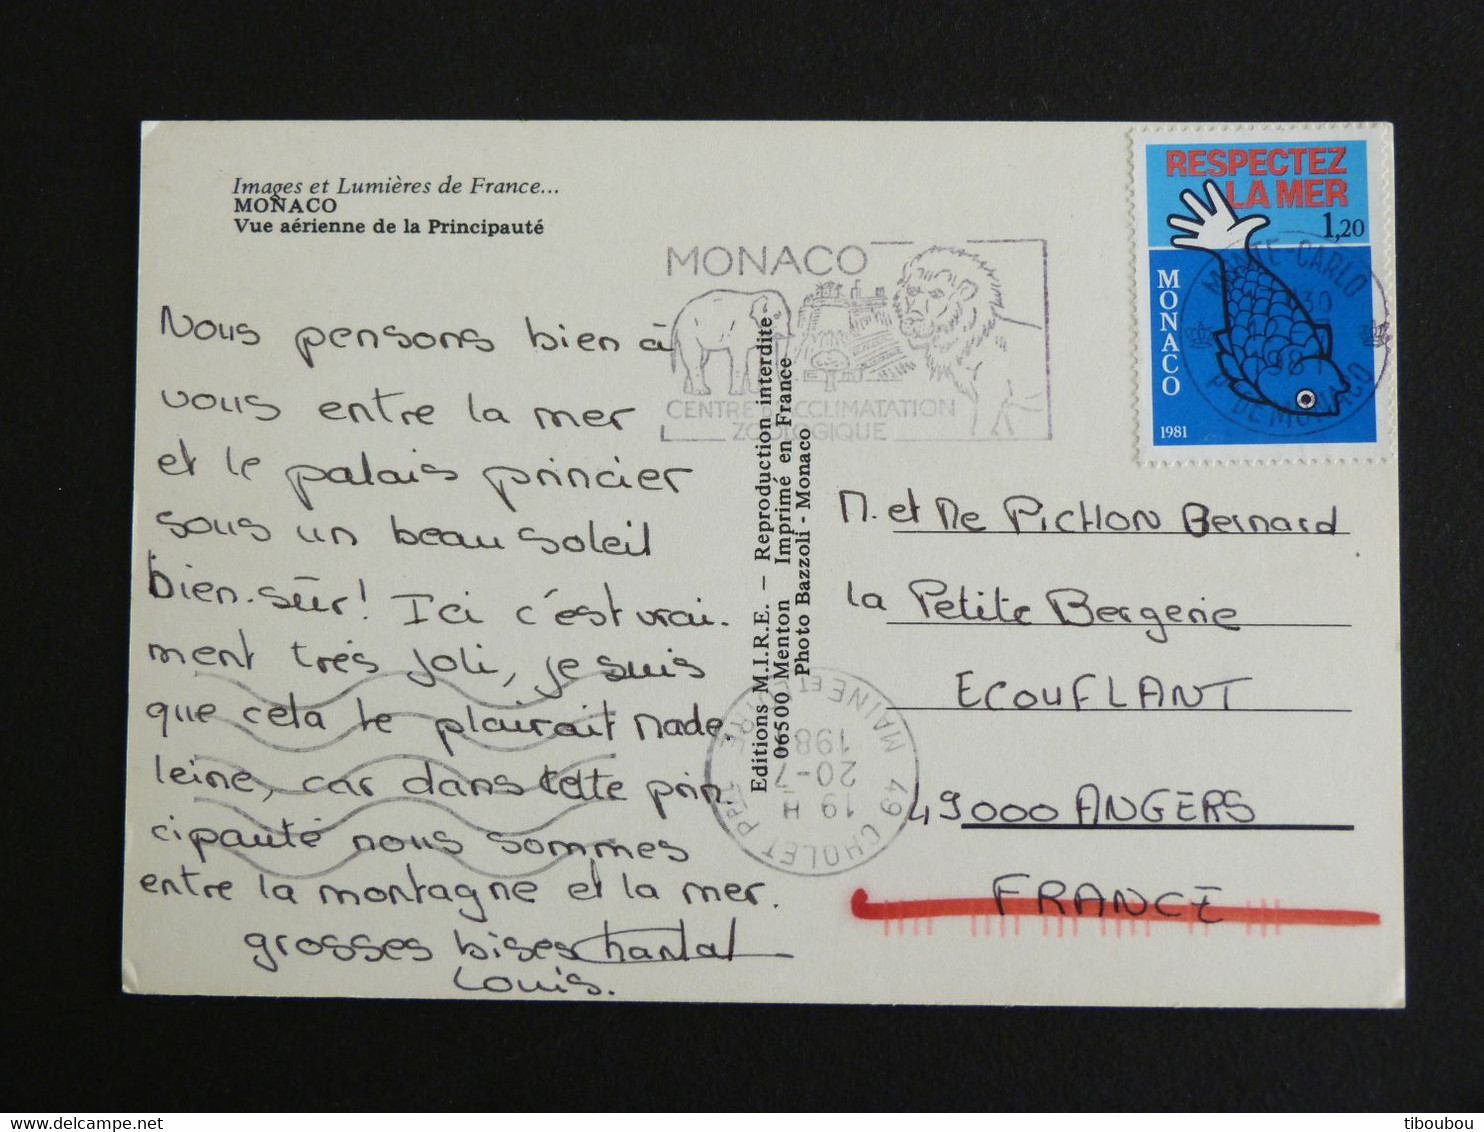 Images et Lumières de France...
MONACO
Vue aérienne de la Principauté
Nous pensons bien à
vous entre la mer
et le palais princier
sous un beau soleil
bien-sûr! Ici c'est vrai-
ment très joli, je suis
que cela te plairait Made-
leine, car dans cette prin-
cipauté nous sommes
entre la montagne et la mer.
grosses bises Chantal
Louis.
MONACO
CENTRE D'ACCLIMATATION
ZOOLOGIQUE
Editions M.I.R.E. - Reproduction interdite
06500 Menton Imprimé en France
Photo Bazzoli - Monaco
RESPECTEZ
LA MER
1,20
MONACO
1981
MONTE-CARLO
PTE DE MONACO
M. et Me PICHON Bernard
la Petite Bergerie
ECOUFLANT
49000 ANGERS
FRANCE
49 CHOLET PPAL
MAINE ET LOIRE
19 H
20-7
198
tiboubou